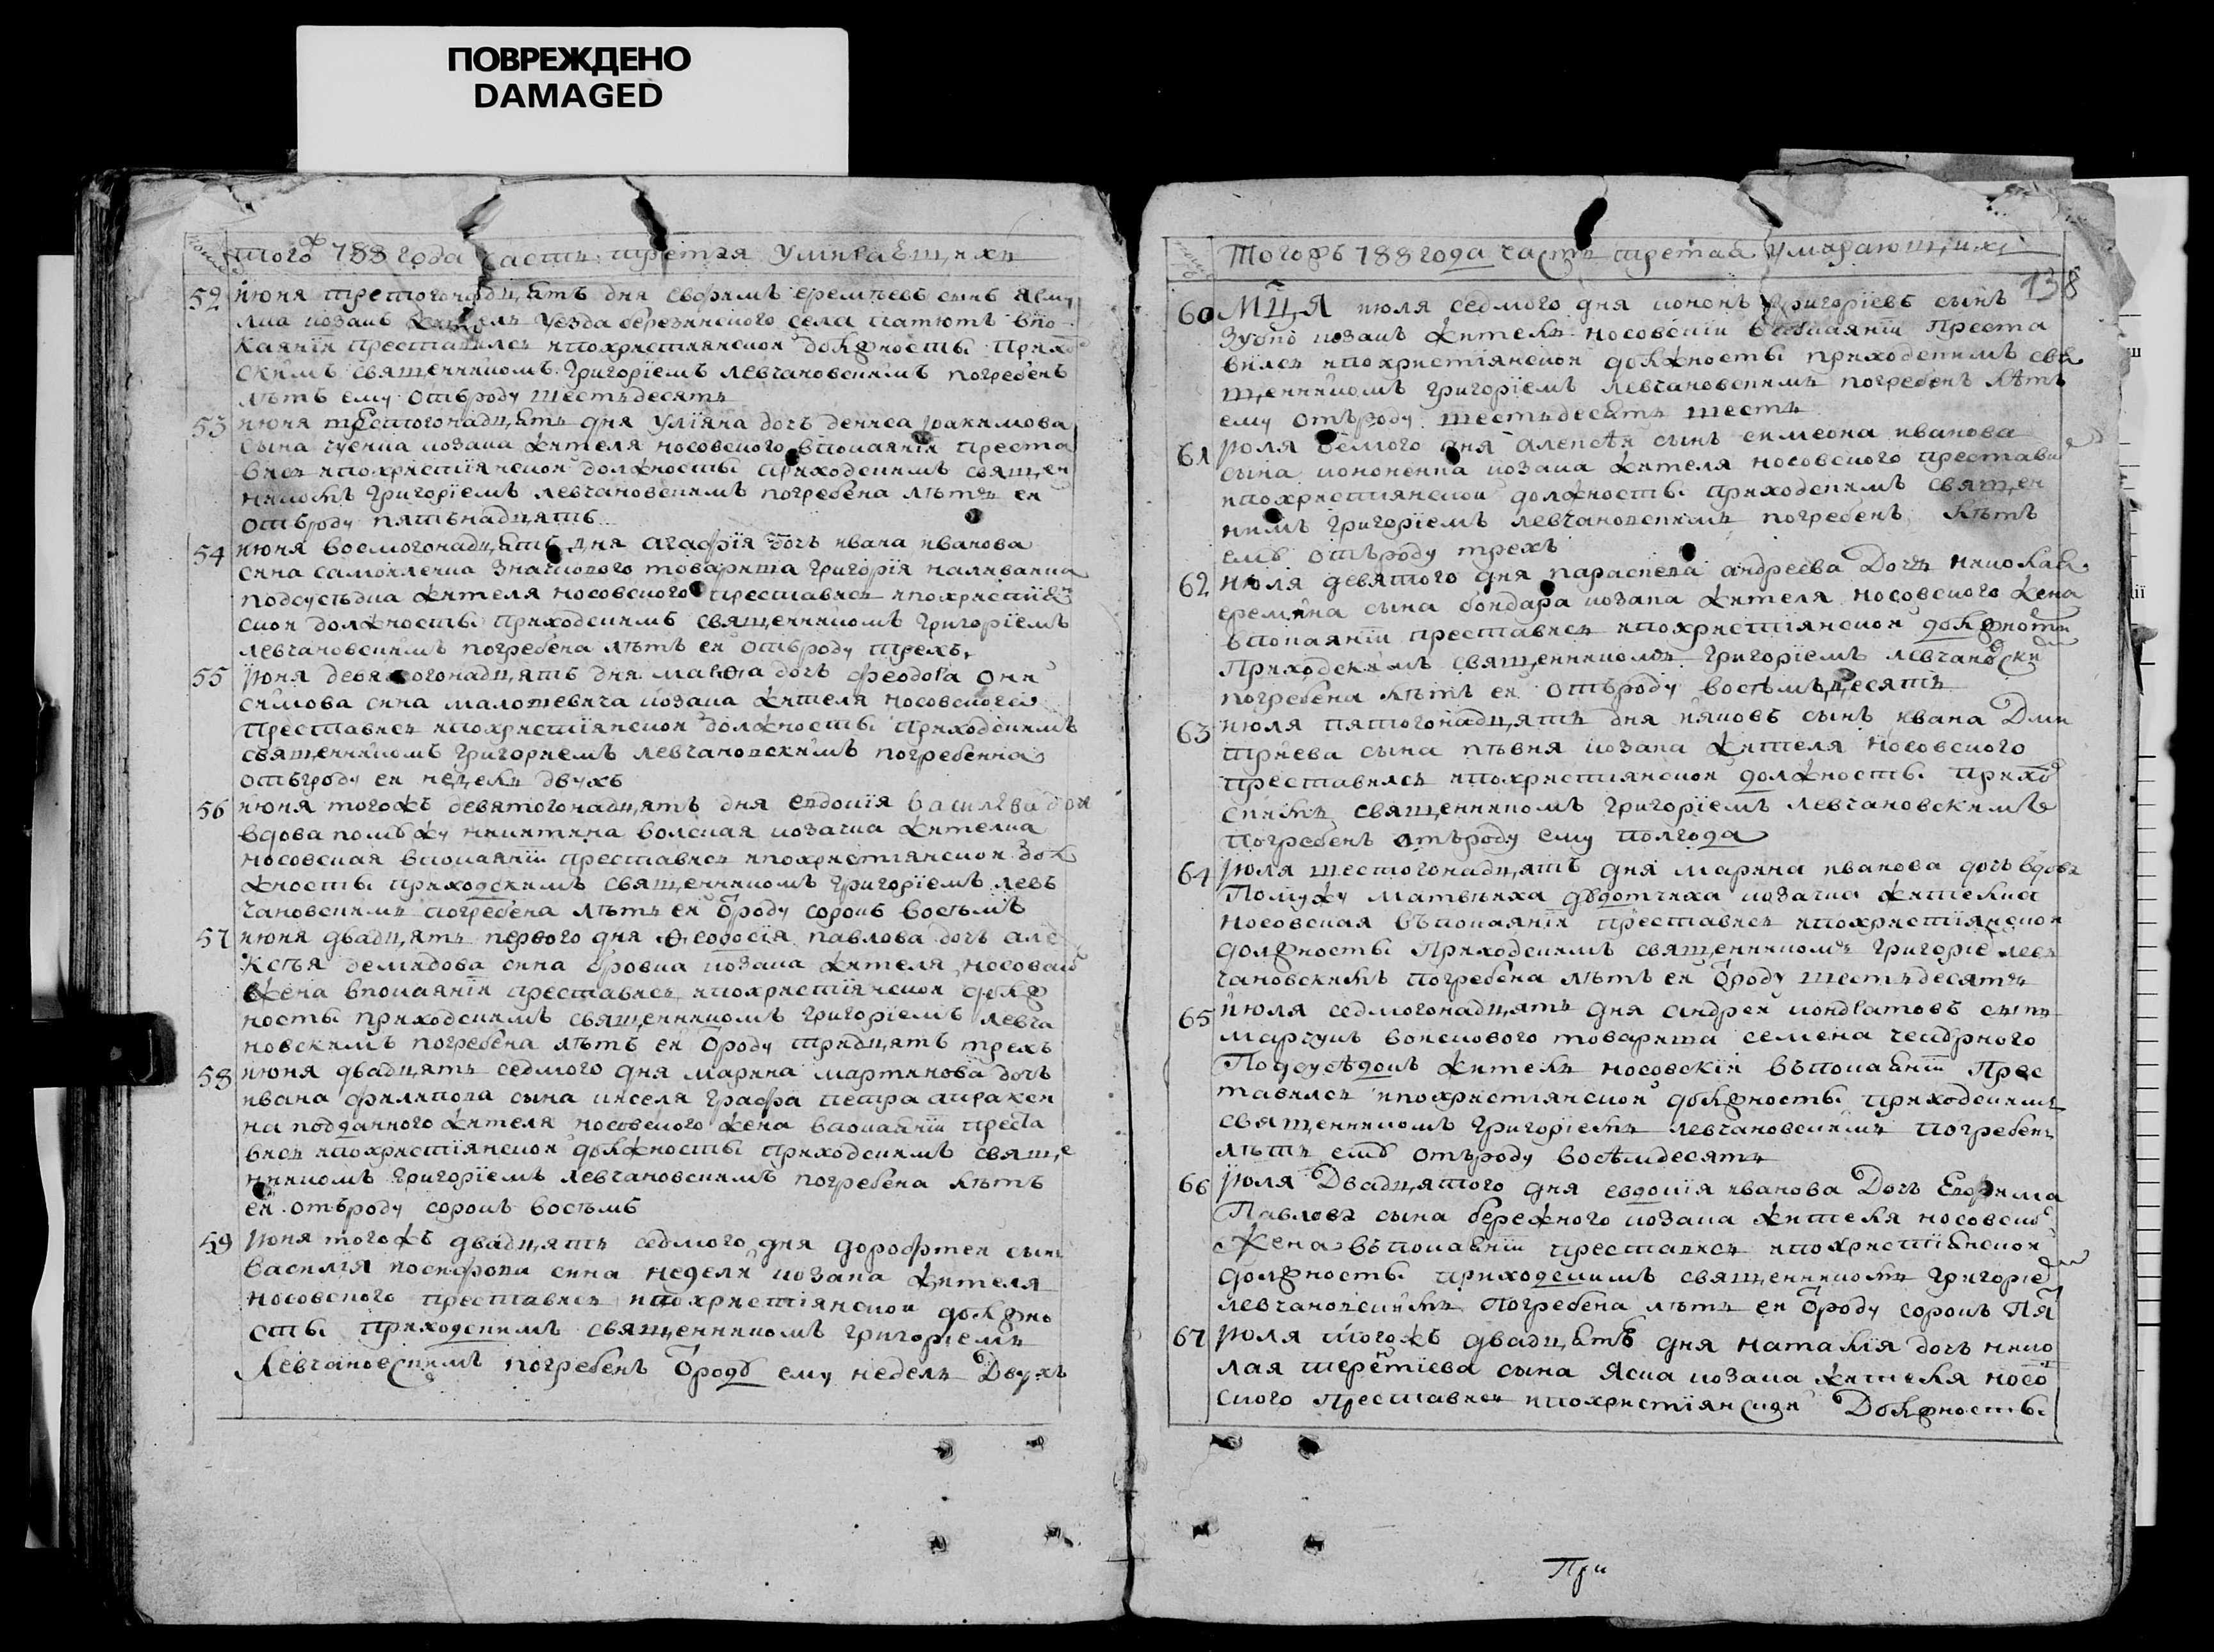 ПОВРЕЖДЕНО
DAMAGED
того 788 года часть третая умирающихъ
52 июня третогонадцять дня ефримъ еремѣевъ сынъ
козакъ житель уезда березинского села впо
каянїи преставился ипохристиянской должносты прихо
скимъ священникомъ григорїемъ левчановскимъ погребенъ
лѣтъ ему отъроду шестьдесятъ
53 июня третогонадцять дня улїяна дочъ дениса иоакимова
сына козака жителя носовского впокаянїи преста
вись ипохристїянской должносты приходскимъ священ
никомъ григорїемъ левчановскимъ погребена лѣтъ ей
отъроду пятьнадцять
54 июня восмогонадцять дня агафїя дочъ ивана иванова
сина самойленка значкового товариша григорїя наливайка
подсусѣдка жителя носовского преставись ипохристия
ской должносты приходскимъ священникомъ григорїемъ
левчановскимъ погребена лѣтъ ей отъроду трехъ
55 июня девятогонадцять дня дочъ феодота они
симова сина козака жителя носовского
преставись ипохристїянской должносты приходскимъ
священникомъ григориемъ левчановскимъ погребенна
отъроду ей недель двухъ
56 июня тогожъ девятогонадцять дня евдокїя василева доч
вдова помужу никитина козачка жителка
носовская впокаянїи преставись ипохристиянской дол
жносты приходскимъ священникомъ григорїемъ левъ
чановскимъ погребена лѣтъ ей ѿроду сорокъ восѣмъ
57 июня двадцять первого дня ѳеодосїя павлова дочъ але
ксѣя демидова сина бровка козака жителя носовско
жена впокаянїи преставись ипохристїянской долж
носты приходскимъ священникомъ григорїемъ левча
новскимъ погребена лѣтъ ей ѿроду тридцять трехъ
58 июня двадцять седмого дня марина мартинова дочъ
ивана филипова сина киселя графа петра
на подданного жителя носовского жена впокаянїи преста
вись ипохристїянской должносты приходскимъ священ
никомъ григорїемъ левчановскимъ погребена лѣтъ
ей отъроду сорокъ восѣмъ
59 июня тогожъ двадцять седмого дня дорофтей сынъ
василїя сина недели козака жителя
носовского преставись ипохристїянской должно
сты приходскимъ священникомъ григорїемъ
левчановскимъ погребенъ ѿроду ему недель двухъ
тогожъ 788 года часть третая умирающихъ
138
60 мца июля седмого дня кононъ григорїевъ сынъ
козакъ житель носовскїи впокаянїи преста
вилсь ипохристїянской должносты приходскимъ свя
щенникомъ григорїемъ левчановскимъ погребенъ лѣтъ
ему отъроду шестьдесятъ шесть
61 июля дня алексѣй сынъ симеона иванова
сына кононенка козака жителя носовского преставис
ипохристїянской должносты приходскимъ священ
нимъ григорїемъ левчановскимъ погребенъ лѣтъ
ему отъроду трехъ
62 июля девятого дня параскева андреева дочъ николая
еремѣина сына бондара козака жителя носовского жена
впокаянїи преставись ипохристїянской должности
приходскимъ священникомъ григорїемъ левчановски
погребена лѣтъ ей отъроду восѣмъдесятъ
63 июля пятогонадцять дня ияковъ сынъ ивана дми
триева сына пѣвня козака жителя носовского
преставился ипохристїянской должносты прихо
скимъ священникомъ григорїемъ левчановскимъ
погребенъ отъроду ему полгода
64 июля шестогонадцять дня марина иванова дочъ вдова
помужу матвѣиха козачка жителка
носовская въпокаянїи преставись ипохристїянской
должносты приходскимъ священникомъ григорїе левъ
чановскимъ погребена лѣтъ ей ѿроду шестьдесятъ
65 июля седмогонадцять дня андрей кондратовъ сынъ
войскового товариша семена
подсусѣдокъ житель носовскїи въпокаянїи прес
тавился ипохристїянской должносты приходскимъ
священникомъ григорїемъ левчановскимъ погребенъ
лѣтъ ему отъроду восѣмдесятъ
66 июля двадцятого дня евдокїя иванова дочъ ефрима
павлова сына бережного козака жителя носовско
жена въпокаянїи преставись ипохристїянской
должносты приходскимъ священникомъ григорїе
левчановскимъ погребена лѣтъ ей ѿроду сорокъ пя
67 июля тогожъ двадцять дня наталїя дочъ нико
лая терентїева сына яска козака жителя носо
ского преставись ипохристїянской должносты
При